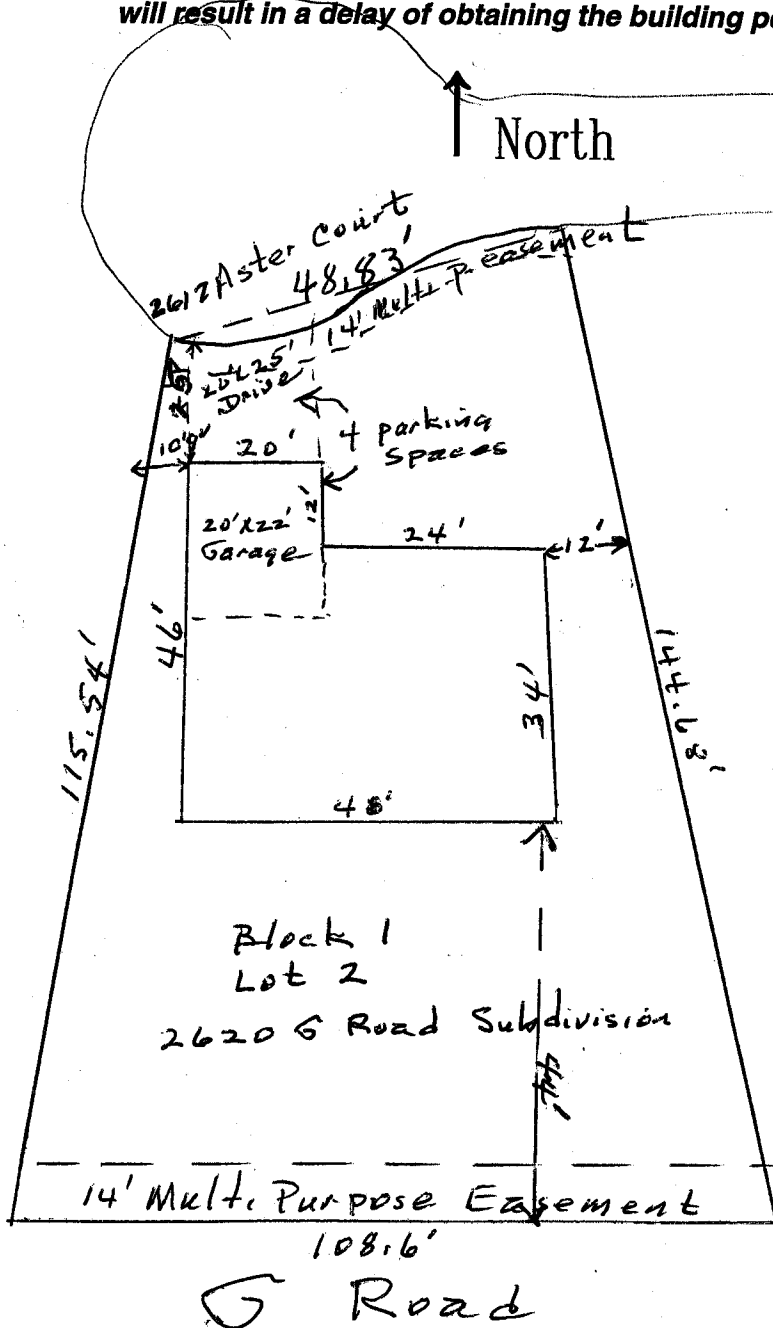 will result in a delay of obtaining the building pe
North
2612 Aster Court
48.83'
14' Multi P. easement
25'
20'x25'
Drive
4 parking
spaces
10'
20'
12'
20'x22'
Garage
24'
12'
46'
34'
115.54'
144.78'
Block 1
Lot 2
2620 G Road Subdivision
14' Multi Purpose Easement
108.6'
G Road